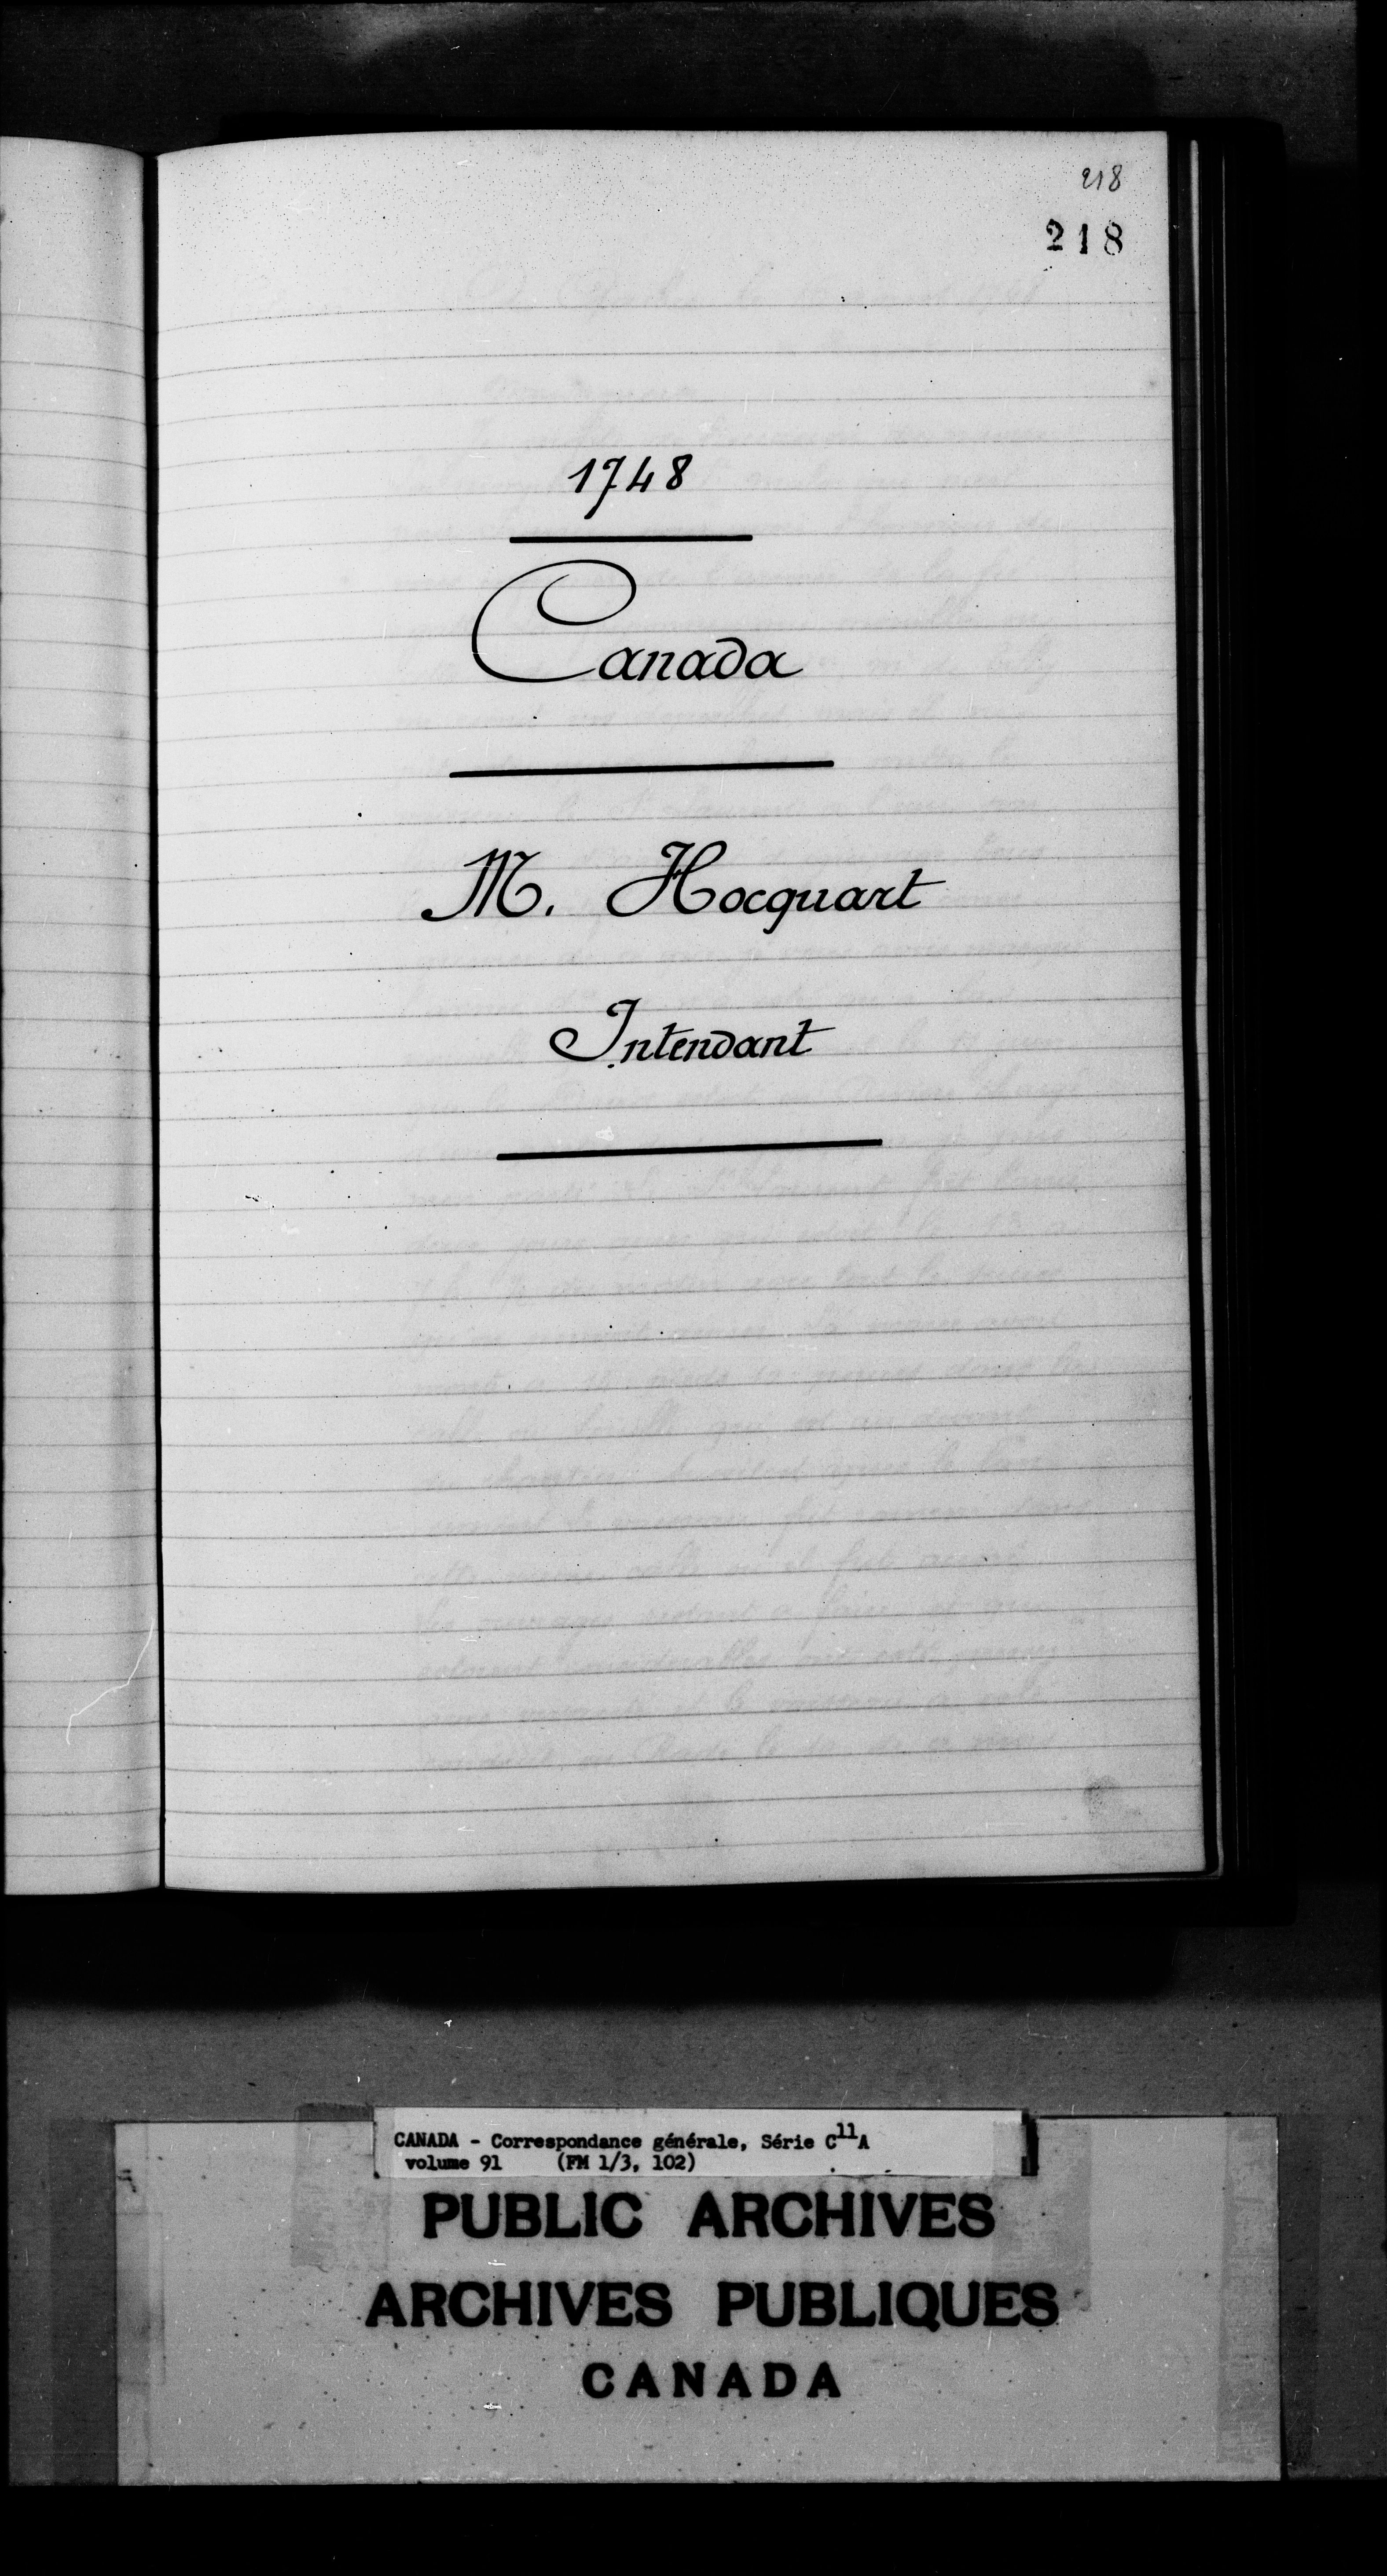 218
218
1748
Canada
M. Hocquart
Intendant
CANADA - Correspondance générale, Série C11A
volume 91 (FM 1/3, 102)
PUBLIC ARCHIVES
ARCHIVES PUBLIQUES
CANADA